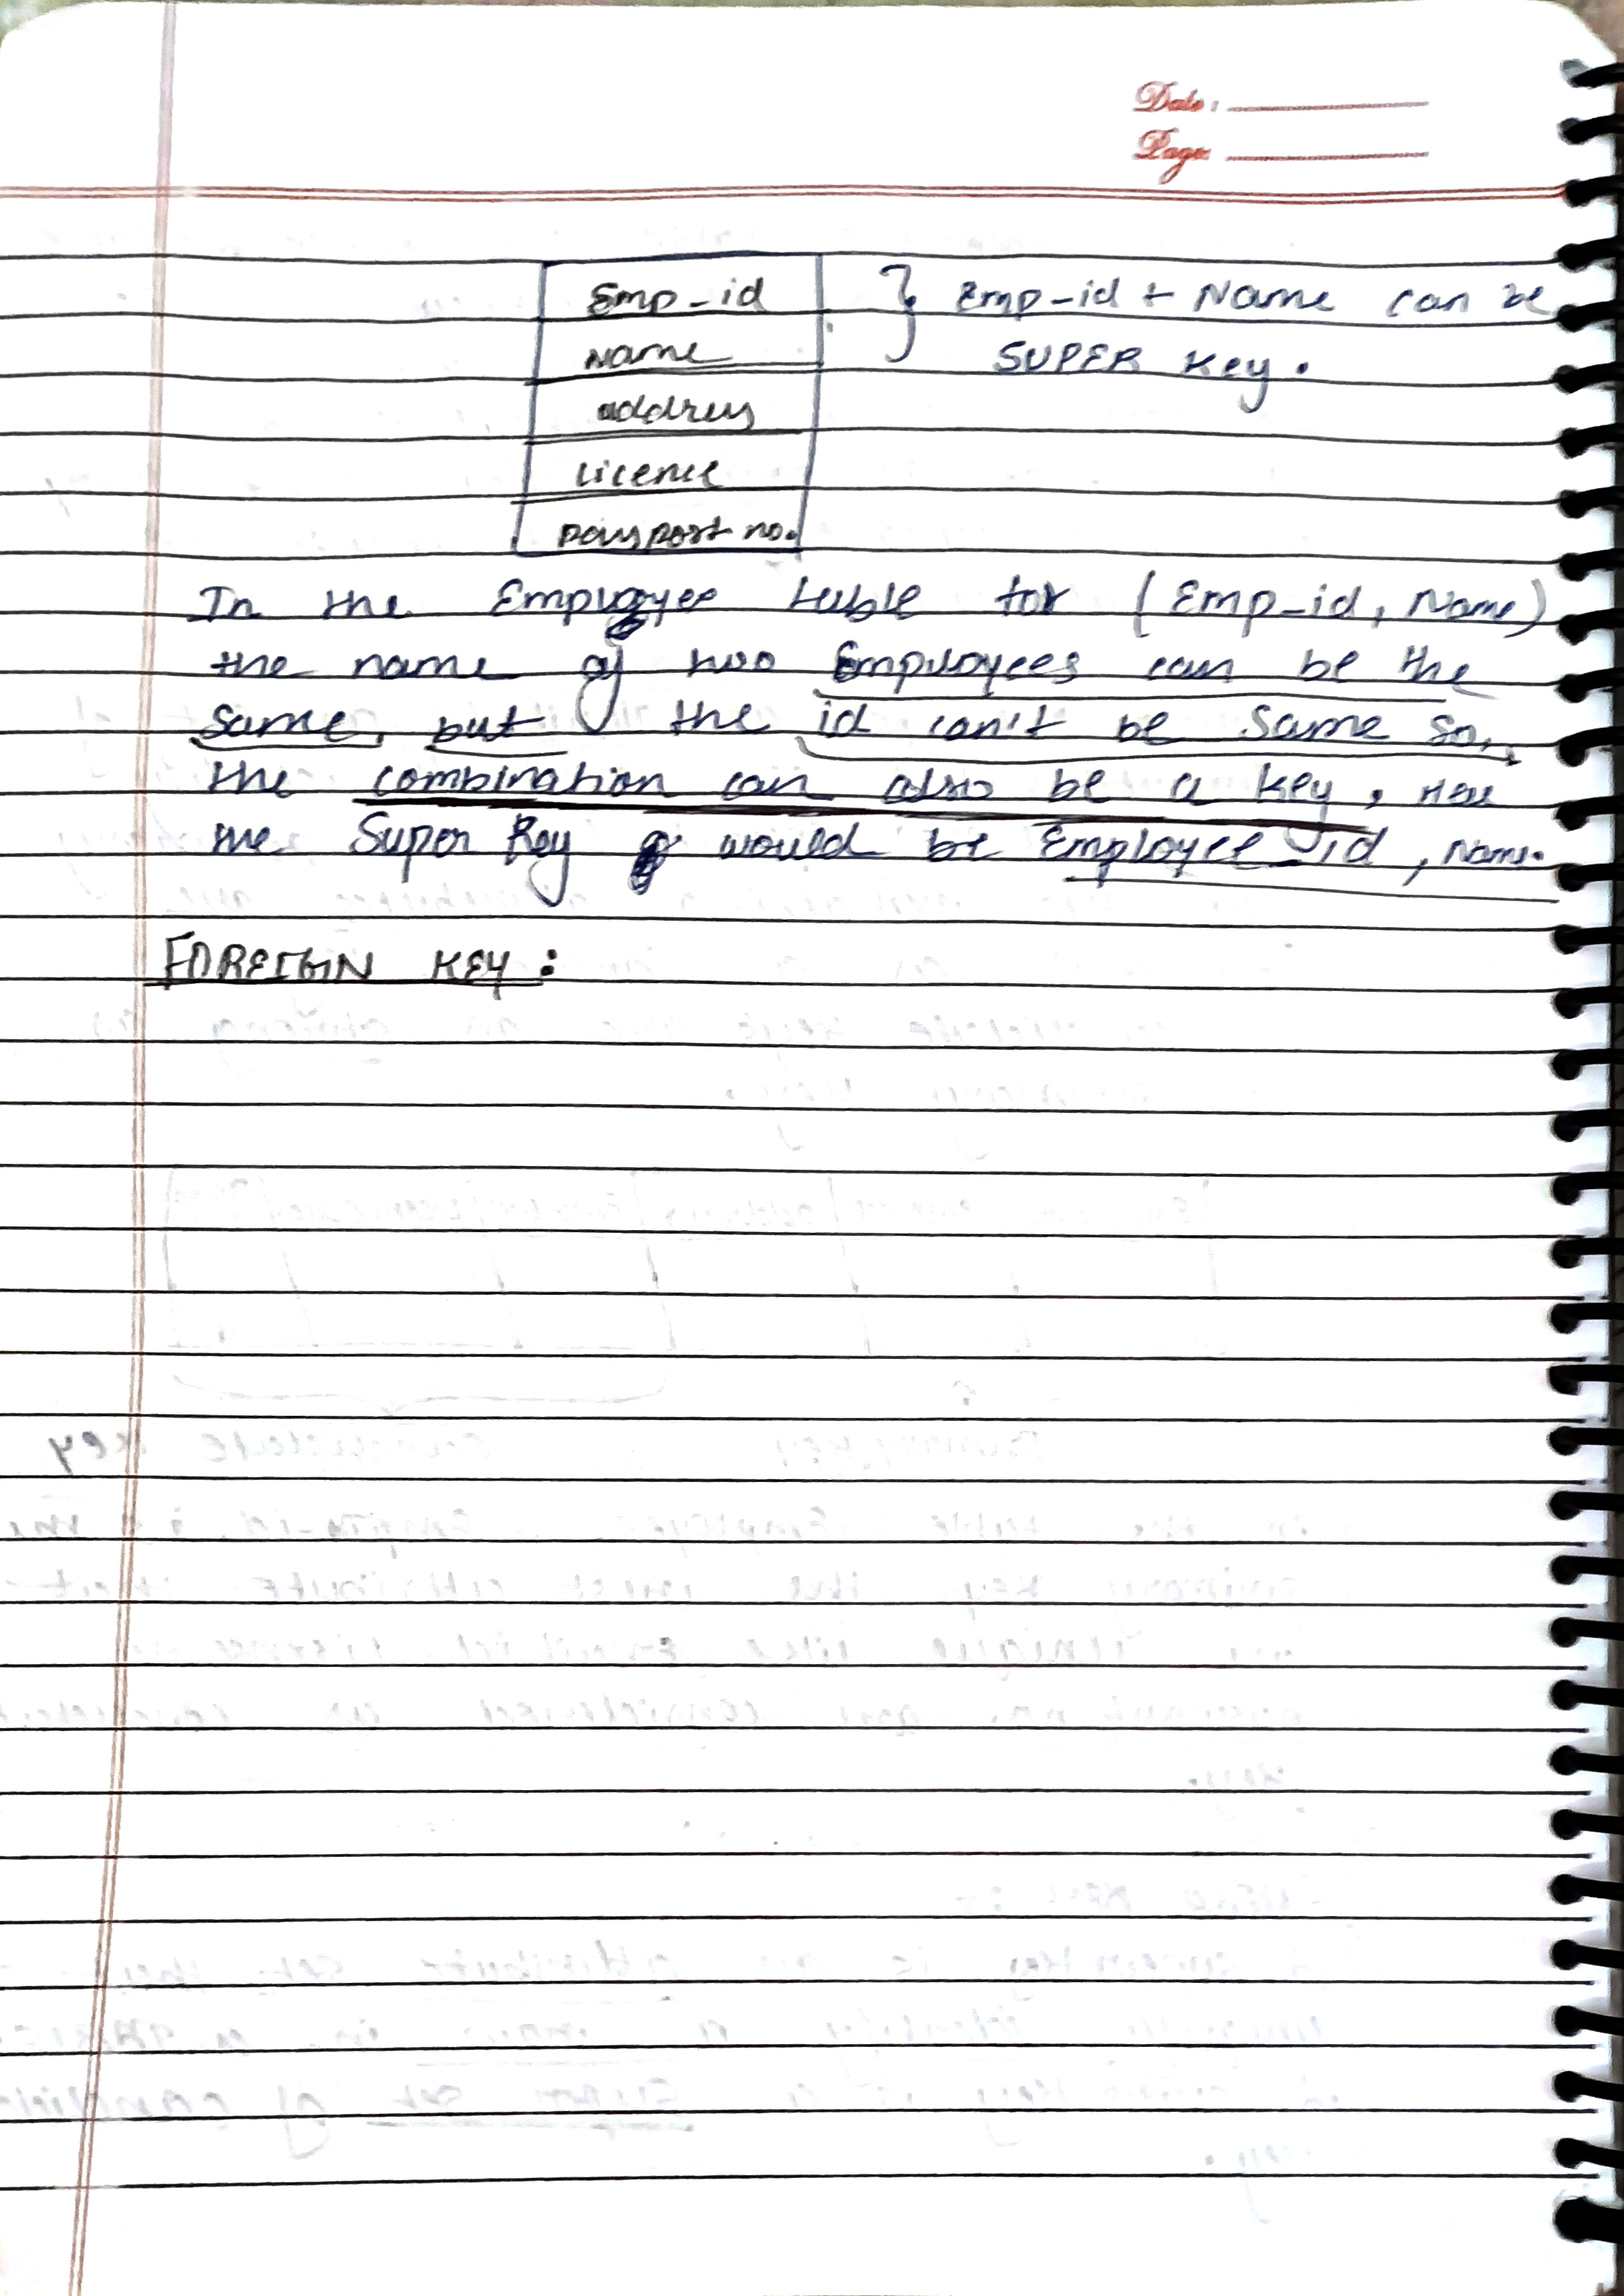 Date:
Page:
Emp-id } Emp-id + Name can be
Name SUPER Key.
address
Licence
passport no.
In the Employee table for (Emp-id, Name)
the name of two Employees can be the
same, but the id can't be same so,
the combination can also be a key, Here
the Super Key would be Employee-id, Name.
FOREIGN KEY: